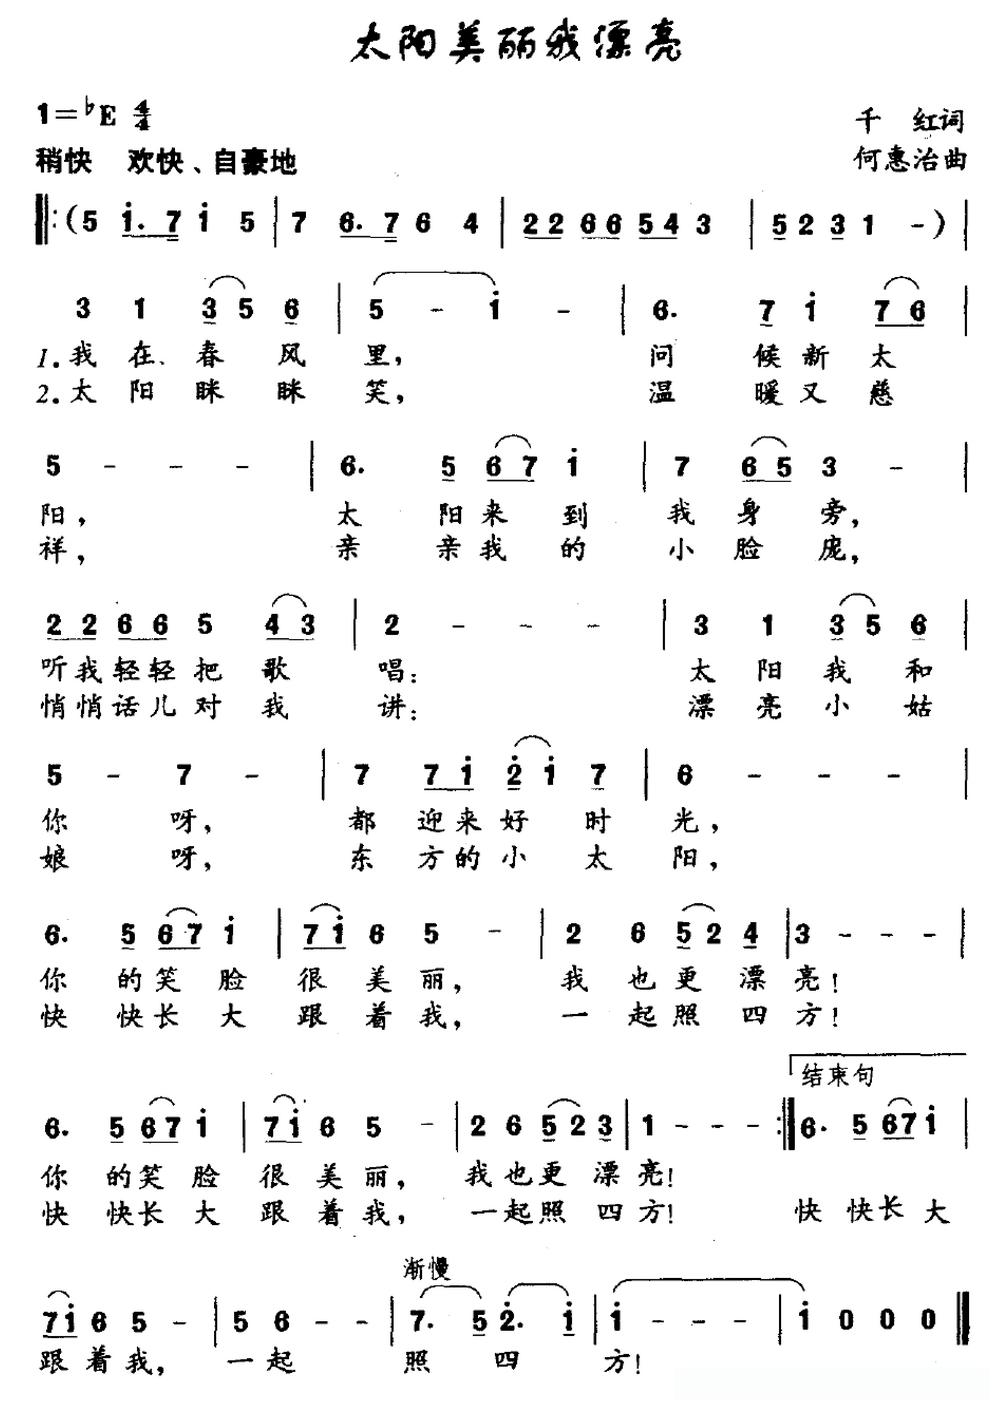 太阳美丽我漂亮
1=♭E 4/4
千 红词
稍快 欢快、自豪地
何惠治曲
‖:(5 i. 7 i 5 | 7 6. 7 6 4 | 2 2 6 6 5 4 3 | 5 2 3 1 -) |
3 1 3 5 6 | 5 - i - | 6. 7 i 7 6 |
1. 我 在、春 风 里, 问 候 新 太
2. 太 阳 眯 眯 笑, 温 暖 又 慈
5 - - - | 6. 5 6 7 i | 7 6 5 3 - |
阳, 太 阳 来 到 我 身 旁,
祥, 亲 亲 我 的 小 脸 庞,
2 2 6 6 5 4 3 | 2 - - - | 3 1 3 5 6 |
听 我 轻 轻 把 歌 唱: 太 阳 我 和
悄 悄 话 儿 对 我 讲: 漂 亮 小 姑
5 - 7 - | 7 7 i 2̇ i 7 | 6 - - - |
你 呀, 都 迎 来 好 时 光,
娘 呀, 东 方 的 小 太 阳,
6. 5 6 7 i | 7 i 6 5 - | 2 6 5 2 4 | 3 - - - |
你 的 笑 脸 很 美 丽, 我 也 更 漂 亮!
快 快 长 大 跟 着 我, 一 起 照 四 方!
结束句
6. 5 6 7 i | 7 i 6 5 - | 2 6 5 2 3 | 1 - - - :‖ 6. 5 6 7 i |
你 的 笑 脸 很 美 丽, 我 也 更 漂 亮!
快 快 长 大 跟 着 我, 一 起 照 四 方! 快 快 长 大
渐慢
7 i 6 5 - | 5 6 - - | 7. 5 2̇. i | i - - - | i 0 0 0 ‖
跟 着 我, 一 起 照 四 方!